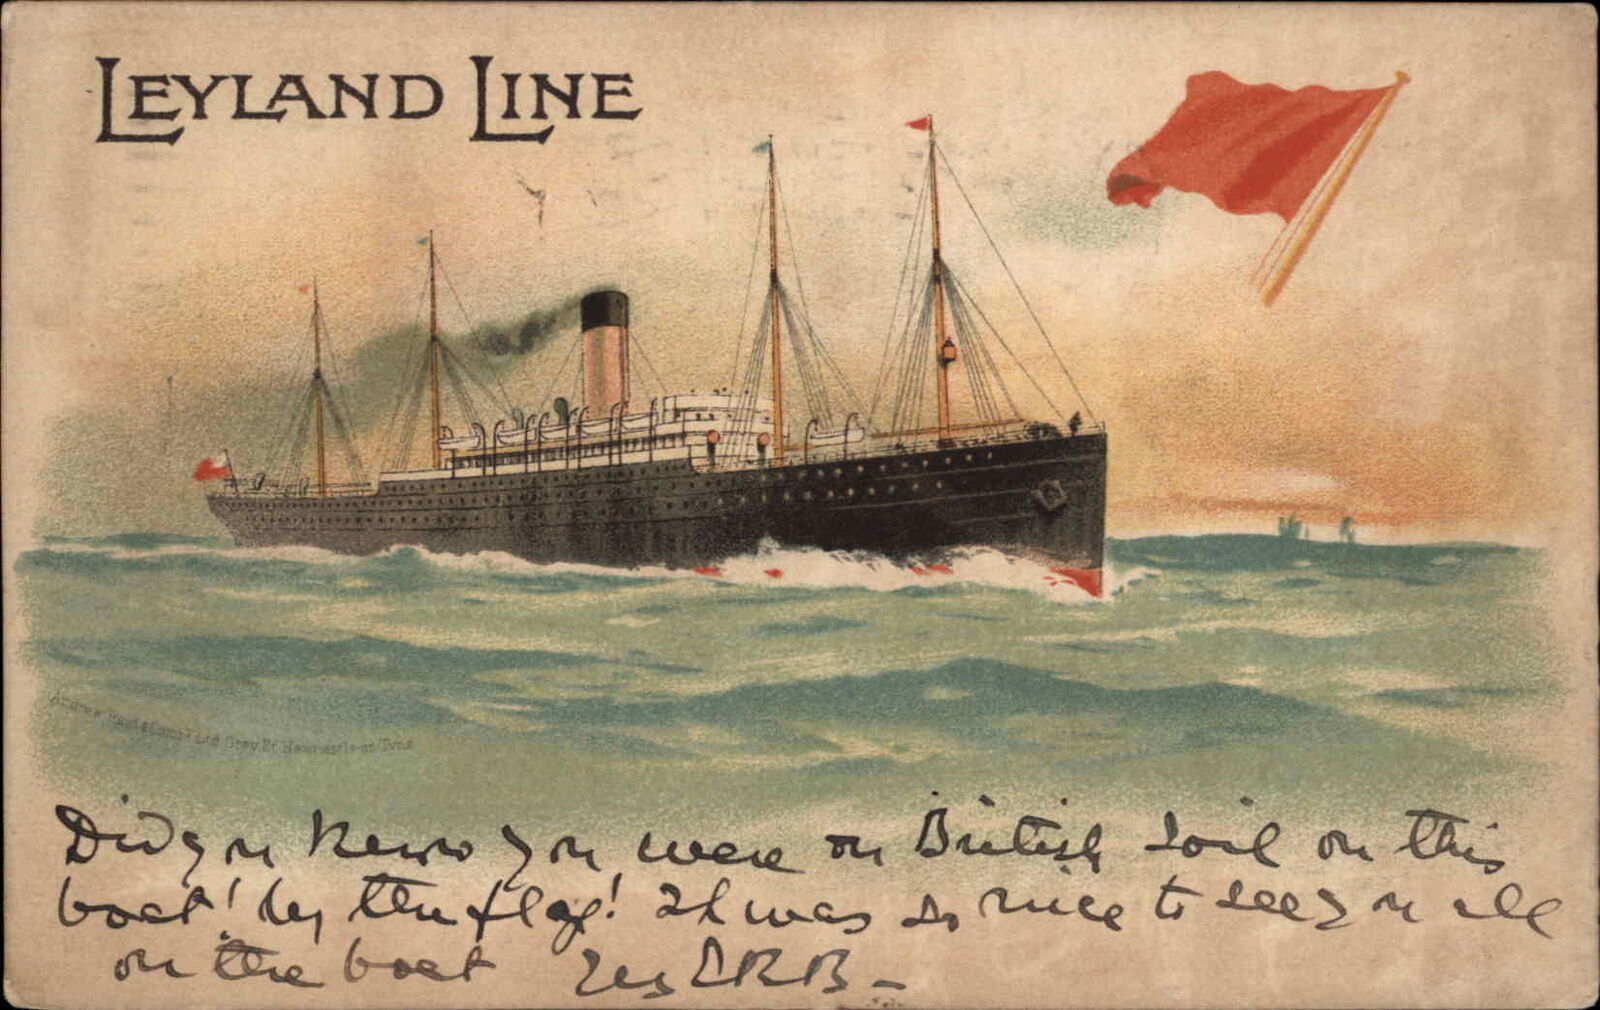 LEYLAND LINE
Andrew Reid & Compy Ltd Grey St Newcastle-on-Tyne
Did you know you were on British soil on this
boat! by the flag! It was so nice to see you all
on the boat E R B -